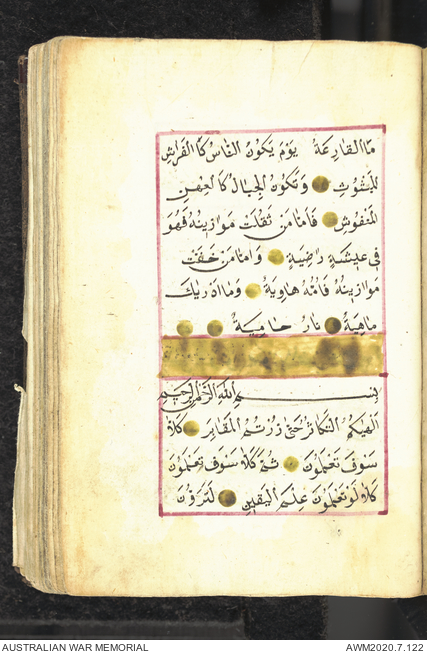 مَا القَارِعَةُ يَوْمَ يَكُونُ النَّاسُ كَالفَرَاشِ
المَبْثُوثِ وَتَكُونُ الجِبَالُ كَالعِهْنِ
المَنْفُوشِ فَأَمَّا مَنْ ثَقُلَتْ مَوَازِينُهُ فَهُوَ
فِي عِيشَةٍ رَاضِيَةٍ وَأَمَّا مَنْ خَفَّتْ
مَوَازِينُهُ فَأُمُّهُ هَاوِيَةٌ وَمَا أَدْرٰيكَ
مَاهِيَهْ نَارٌ حَامِيَةٌ
بِسْمِ اللّٰهِ الرَّحْمٰنِ الرَّحِيمِ
أَلْهٰيكُمُ التَّكَاثُرُ حَتَّى زُرْتُمُ المَقَابِرَ كَلَّا
سَوْفَ تَعْلَمُونَ ثُمَّ كَلَّا سَوْفَ تَعْلَمُونَ
كَلَّا لَوْ تَعْلَمُونَ عِلْمَ اليَقِينِ لَتَرَوُنَّ
AUSTRALIAN WAR MEMORIAL AWM2020.7.122